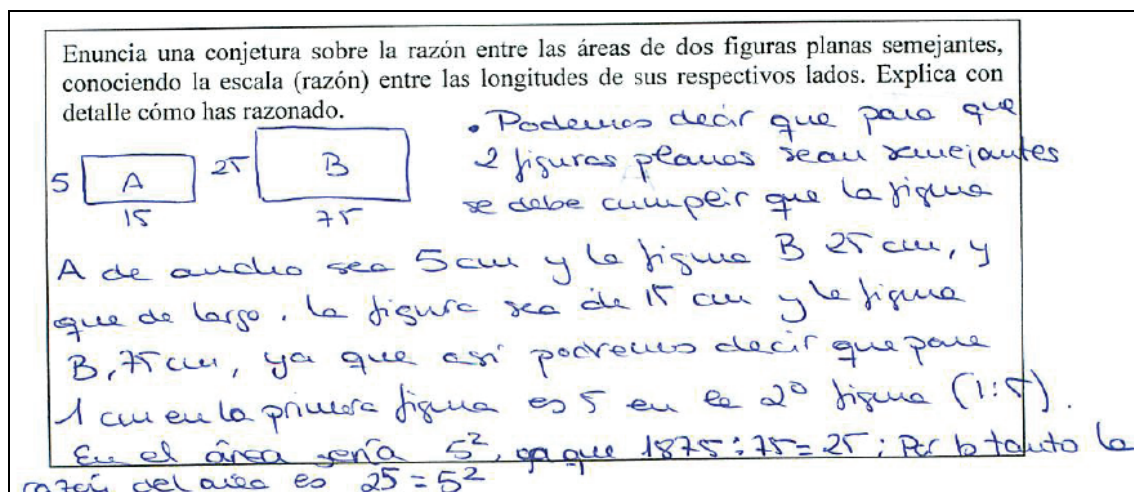 Enuncia una conjetura sobre la razón entre las áreas de dos figuras planas semejantes,
conociendo la escala (razón) entre las longitudes de sus respectivos lados. Explica con
detalle cómo has razonado.
5 A 15
25 B 75
• Podemos decir que para que
2 figuras planas sean semejantes
se debe cumplir que la figura
A de ancho sea 5 cm y la figura B 25 cm, y
que de largo, la figura sea de 15 cm y la figura
B, 75 cm, ya que así podremos decir que para
1 cm en la primera figura es 5 en la 2º figura (1:5).
En el área sería 5², ya que 1875 : 75 = 25; Por lo tanto la
razón del area es 25 = 5²